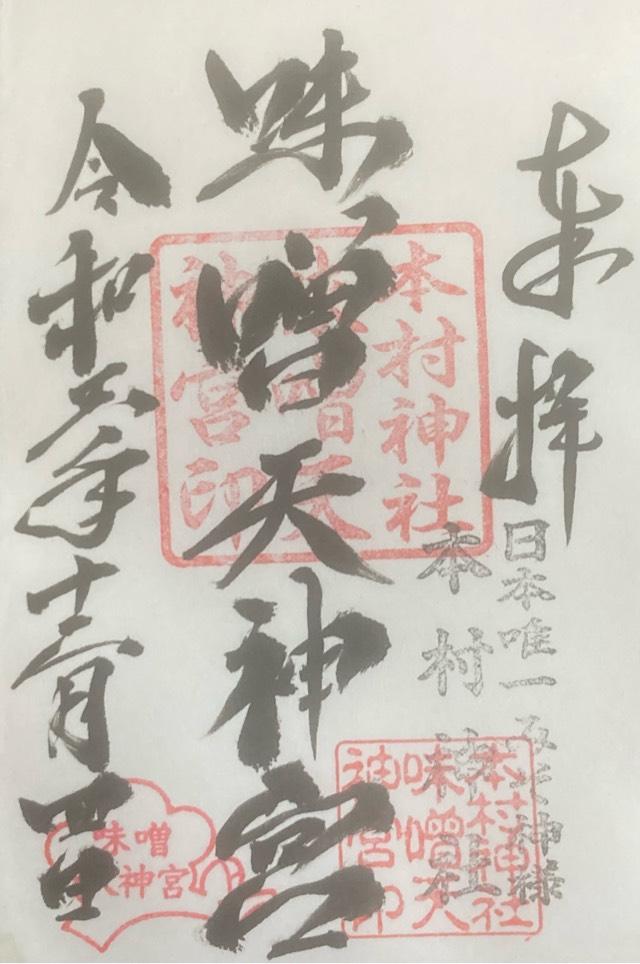 奉拝
日本唯一みそ神様
本村神社
本村神社
味噌天
神宮印
味噌天神宮
本村神社
味噌天
神宮印
令和五年十二月四日
味噌
天神宮